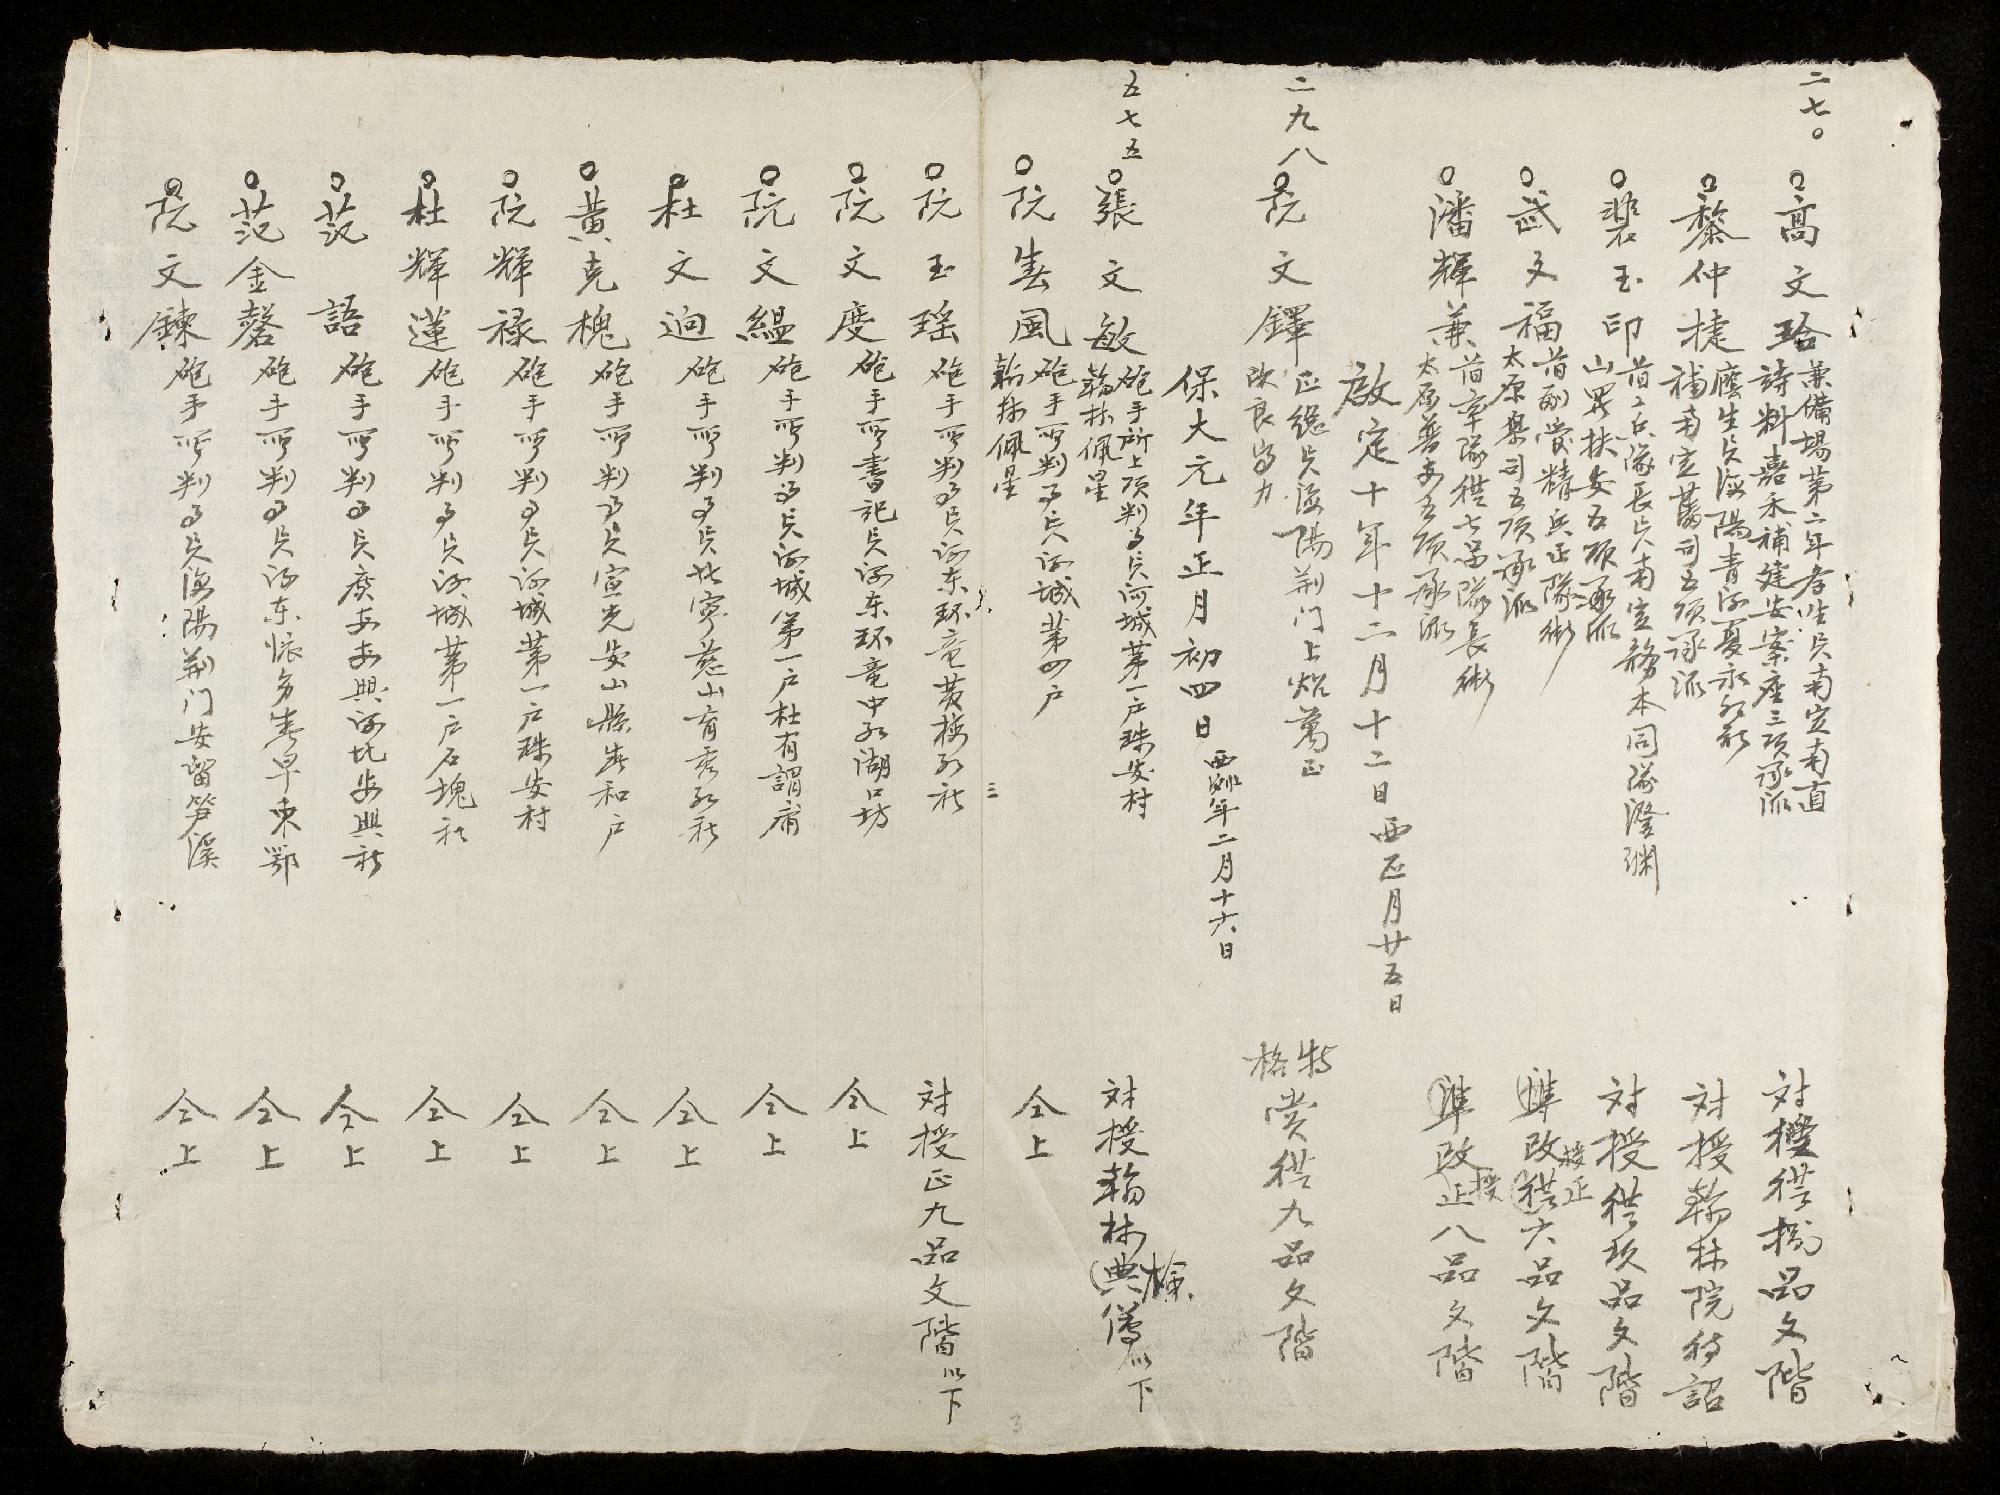 二七〇
高文珨 兼備場第二年孝生貫南定南直
詩料嘉禾補建安案座三項承派
对授從捌品文階
黎仲捷 廕生貫海陽青河夏永紅社
補南定舊司五項承派
对授翰林院待詔
裴玉印 首工兵隊長貫南定務本同隊澄渊
山羅扶安五項承派
对授從玖品文階
武文福 首副管精兵正隊銜
太原案司五項承派
準改授正從六品文階
潘輝兼 首率隊從七品隊長銜
太原普安五項承派
準改授正八品文階
啟定十年十二月十二日 西正月廿五日
二九八
阮文鐸 正總貫海陽荆门上炤萬正
特格賞從九品文階
保大元年正月初四日 西歷年二月十六日
五七五
張文敏 砲手所上項判事貫河城第一户珠安村
翰林佩星
对授翰林典檢僃以下
阮春風 砲手所判事貫河城第四户
翰林佩星
仝上
三
阮玉瑶 砲手所判事貫河东环竜黄梅紅社
对授正九品文階以下
阮文度 砲手所書記貫河东环竜中和湖口坊
仝上
阮文緼 砲手所判事貫河城第一户杜有謂庯
仝上
杜文逈 砲手所判事貫北寧慈山育秀紅社
仝上
黄克槐 砲手所判事貫宣光安山縣春和户
仝上
阮輝禄 砲手所判事貫河城第一户珠安村
仝上
杜輝蓮 砲手所判事貫河城第一户石塊社
仝上
范語 砲手所判事貫廣安安興河北安興社
仝上
范金磬 砲手所判事貫河东懷多春早東鄂
仝上
阮文鍊 砲手所判事貫海陽荆门安留笋溪
仝上
3